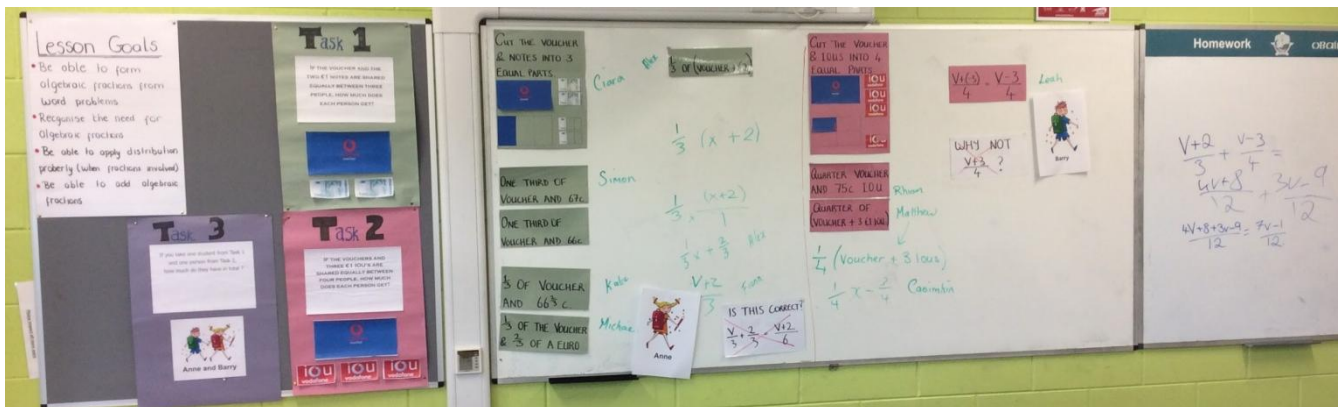 Lesson Goals
• Be able to form
algebraic fractions from
word problems
• Recognise the need for
algebraic fractions
• Be able to apply distribution
properly (when fractions involved)
• Be able to add algebraic
fractions
Task 1
IF THE VOUCHER AND THE
TWO €1 NOTES ARE SHARED
EQUALLY BETWEEN THREE
PEOPLE, HOW MUCH DOES
EACH PERSON GET?
Task 3
If you take one student from Task 1
and one person from Task 2,
how much do they have in total?
Anne and Barry
Task 2
IF THE VOUCHERS AND
THREE €1 IOU'S ARE,
SHARED EQUALLY BETWEEN
FOUR PEOPLE, HOW MUCH
DOES EACH PERSON GET?
IOU IOU IOU
vodafone
CUT THE VOUCHER
& NOTES INTO 3
EQUAL PARTS.
Ciara
ONE THIRD OF
VOUCHER AND 67c
Simon
ONE THIRD OF
VOUCHER AND 66c
1/3 OF VOUCHER
AND 66 2/3 c
1/3 OF THE VOUCHER
& 2/3 OF A EURO
1/3 (x + 2)
1/3 . (x+2)/1
1/3 x + 2/3
V+2/3
Anne
IS THIS CORRECT?
V/3 + 2/3 = V+2/6
CUT THE VOUCHER
& IOUS INTO 4
EQUAL PARTS
IOU
IOU
IOU
IOU
QUARTER VOUCHER
AND 75c IOU
QUARTER OF
(VOUCHER + 3 IOU)
Matthew
1/4 (Voucher + 3 IOUs)
V+(-3)/4 = V-3/4
Leah
WHY NOT
V+3/4 ?
Barry
Homework
V+2/3 + V-3/4 =
4V+8/12 + 3V-9/12
4V+8+3V-9/12 = 7V-1/12